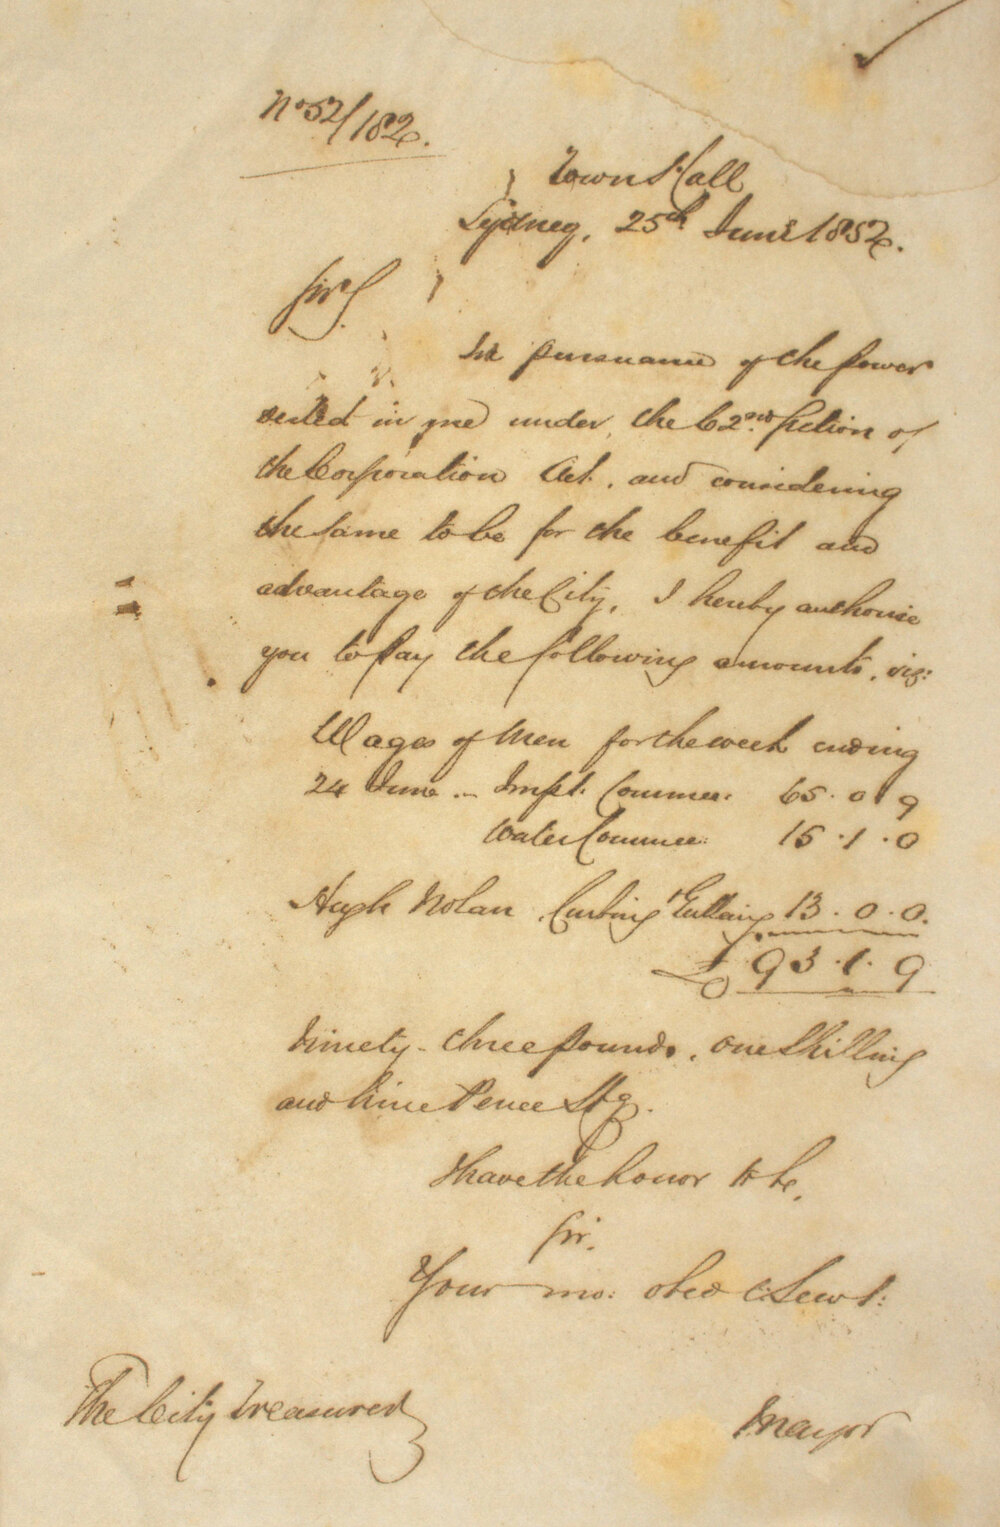 No 52/182.
Town Hall
Sydney, 25th June 1852.
Sir,
In pursuance of the power
vested in me under the 62nd Section of
the Corporation Act, and considering
the same to be for the benefit and
advantage of the City, I hereby authorise
you to pay the following amounts, viz:
Wages of Men for the week ending
24 June .. Impt. Commee: 65.0.9
Water Commee: 15.1.0
Hugh Nolan, Curbing & Guttering 13.0.0.
£93.1.9
Ninety-three pounds, one Shilling
and Nine Pence Stg.
I have the honor to be,
Sir,
Your mo: obed Servt:
The City Treasurer
Mayor